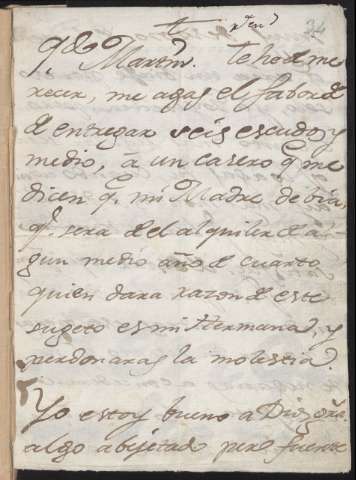 qdo Martin. te he de me
recer, me agas el fabor d
d entregar seis escudos y
medio, a un casero q.e me
dicen q.e mi Madre debia,
q.e sera del alquiler de al
gun medio año d cuarto
quien dara razon d este
sugeto es mi Hermana, y
perdonaras la molestia.
Yo estoy bueno a Dios gra.s
algo abejetad pero fuerte